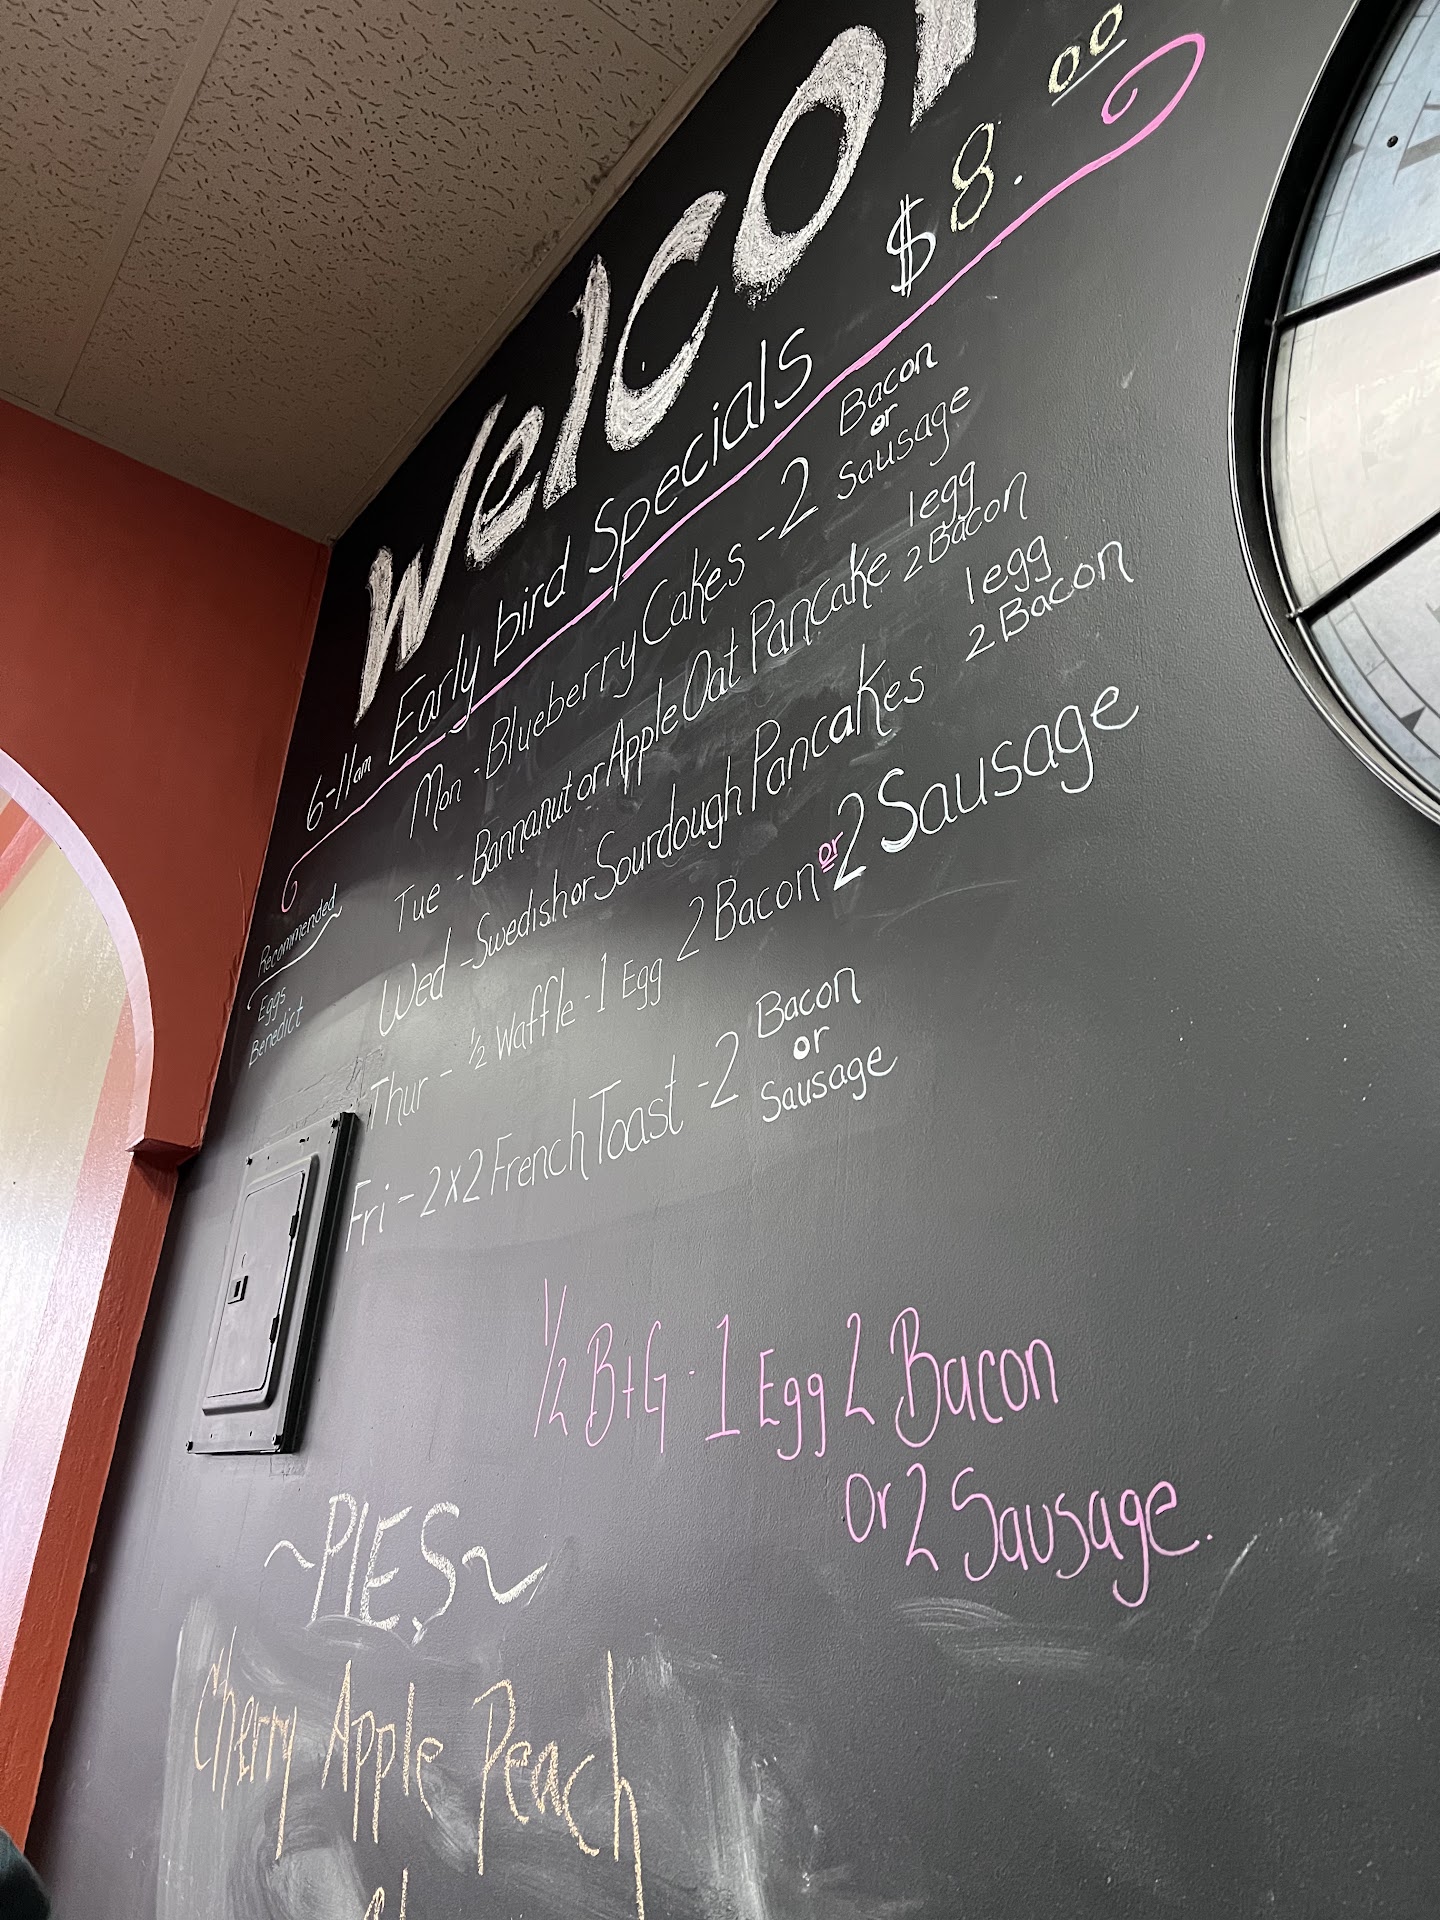 Welco
6-11am Early bird Specials $8.00
Mon - Blueberry Cakes - 2 Bacon or Sausage
Tue - Bannanut or Apple Oat Pancake 1 egg 2 Bacon
Wed - Swedish or Sourdough Pancakes 1 egg 2 Bacon
Thur - 1/2 Waffle - 1 Egg 2 Bacon or 2 Sausage
Fri - 2x2 French Toast - 2 Bacon or Sausage
Recommended
Eggs
Benedict
1/2 B+G - 1 Egg 2 Bacon
Or 2 Sausage.
~PIES~
Cherry Apple Peach